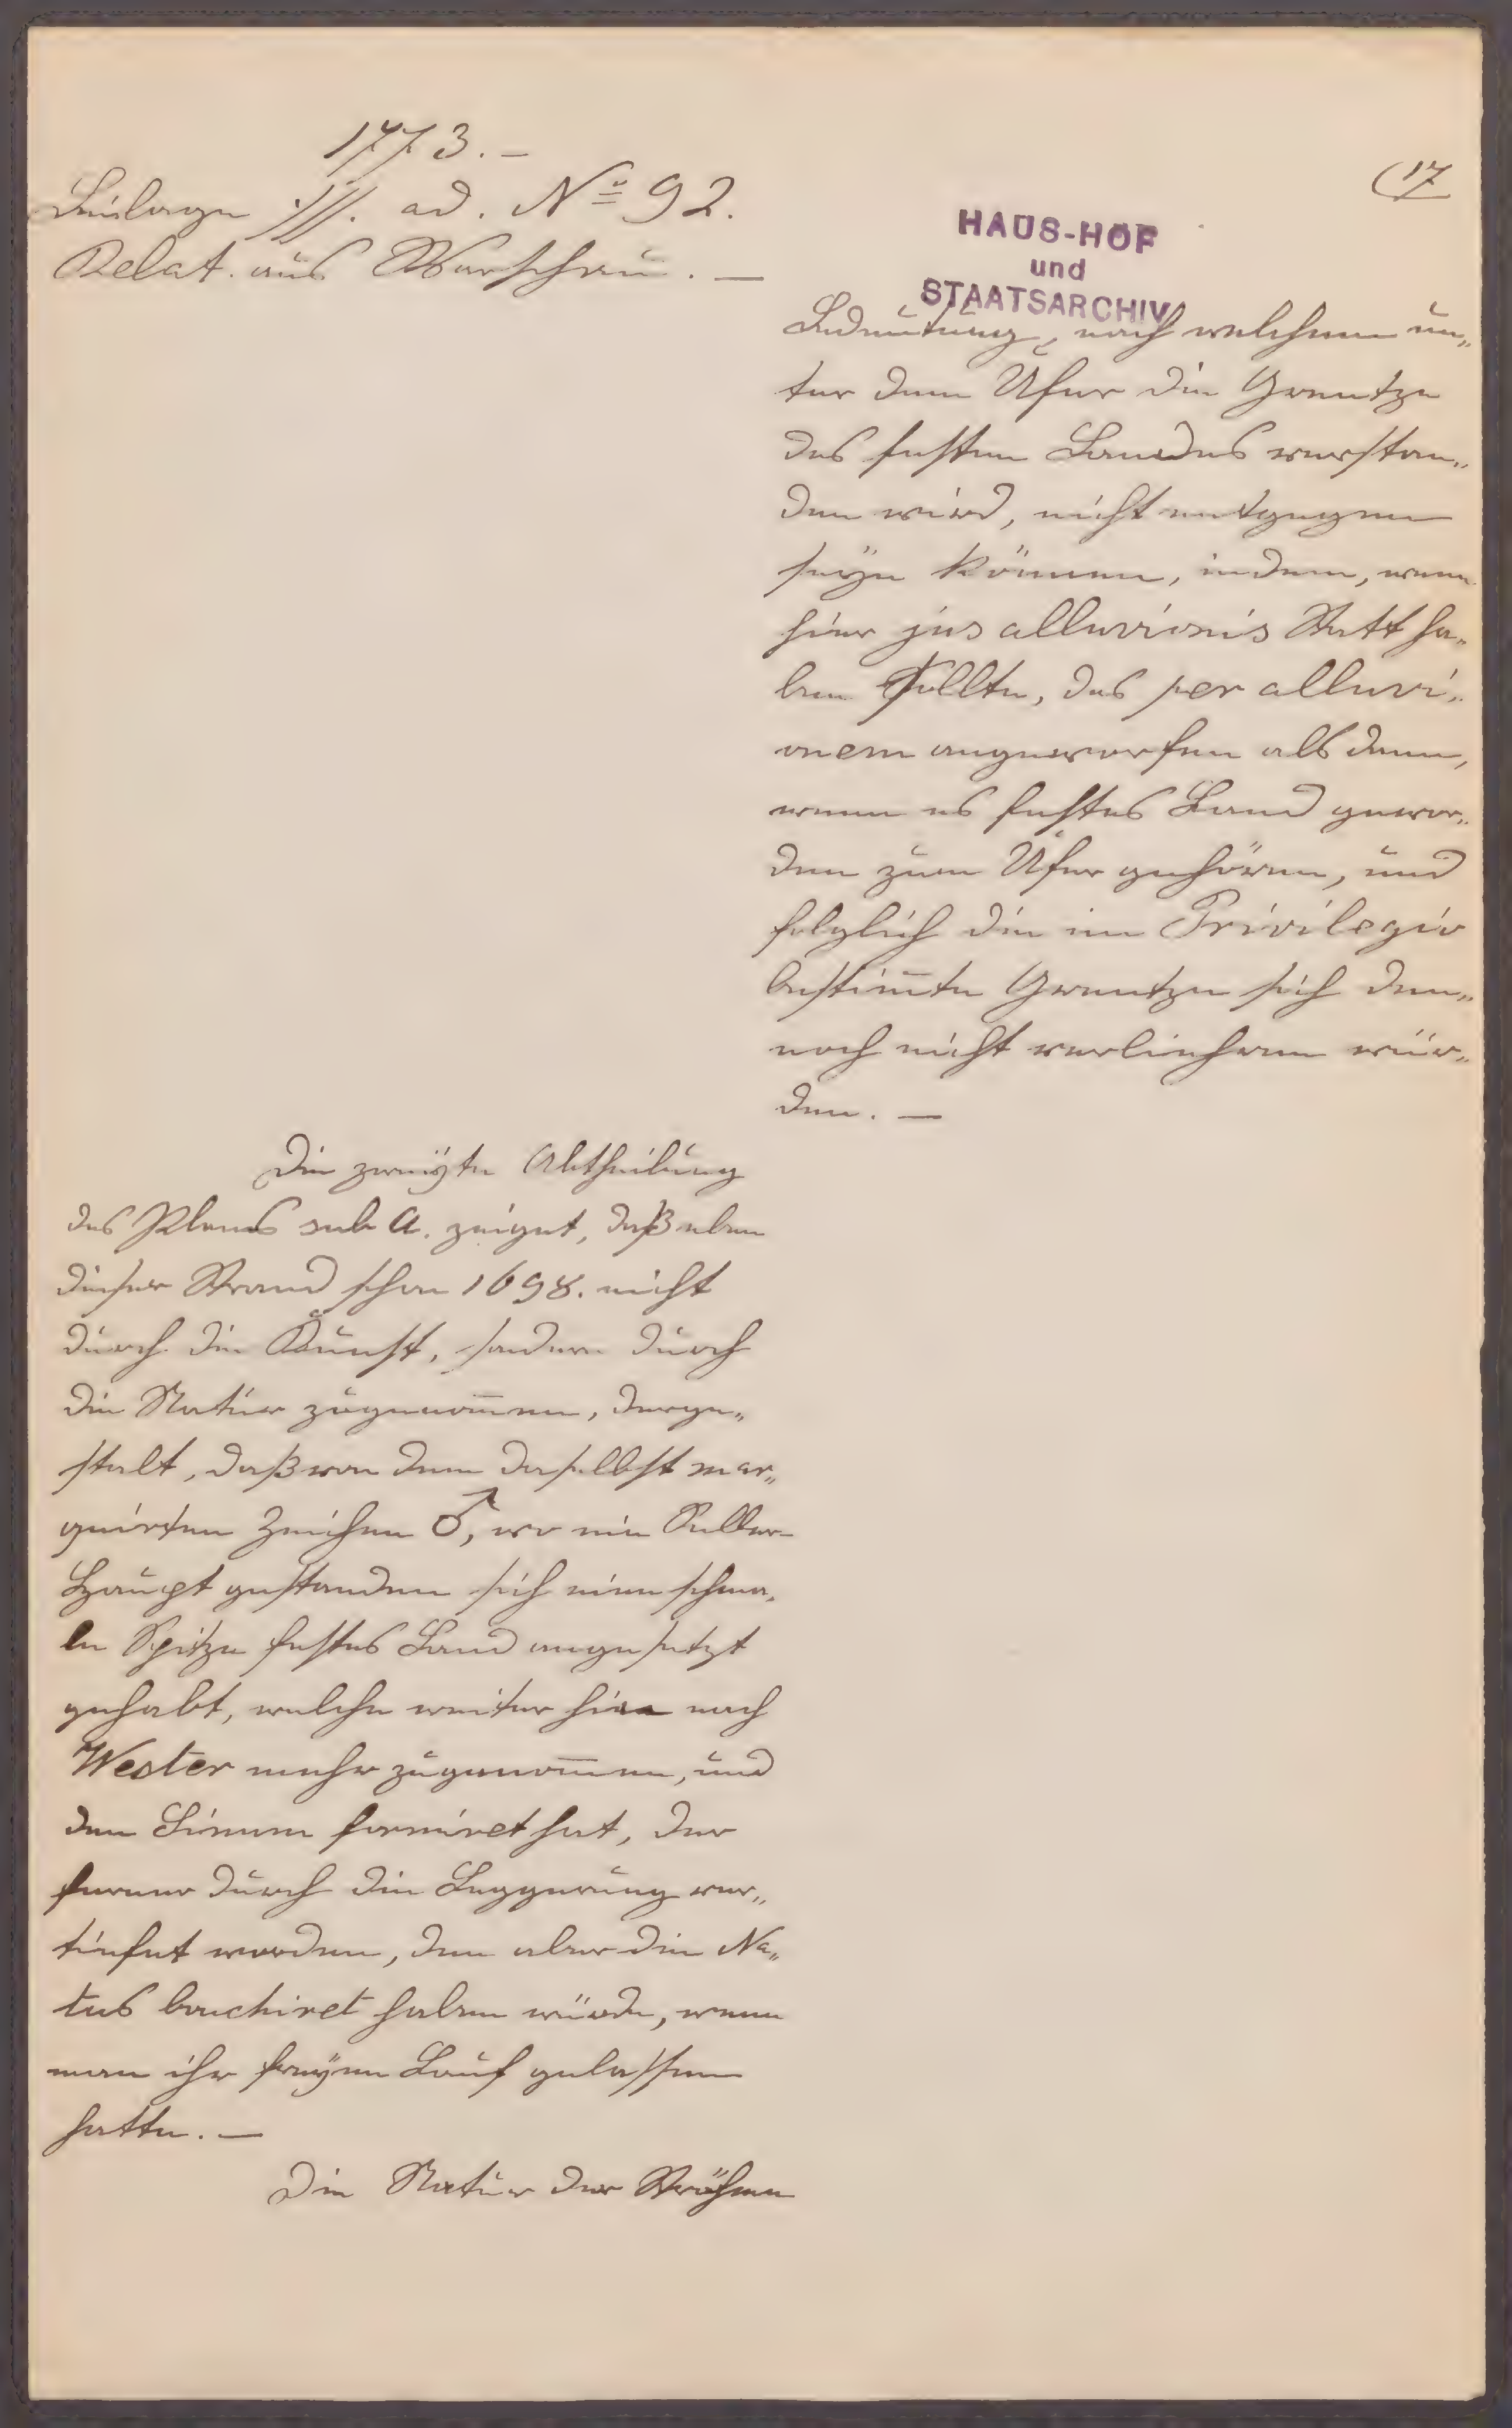 1773. –
Beilage ·///. ad. Nº 92.
Relat. aus Warschau. –
(17
HAUS-HOF
und
STAATSARCHIV
Bedeutung, nach welchem un„
ter dem Ufer die Grentze
des festen Landes verstan„
den wird, nicht entgegen
seÿn können, indem, wenn
hier jus alluvionis Statt ha„
ben sollte, das per alluvi„
onem angeworfen als denn,
wenn es festes Land gewor„
den zum Ufer gehören, und
folglich die im Privilegio
bestim̄te Grentzen sich den„
noch nicht verliehren wür„
den. –
Die zweÿte Abtheilung
des Plans sub A. zeiget, daß eben
dieser Strand schon 1698. nicht
durch die Kunst, sondern durch
die Natur zugenom̄en, derge„
stalt, daß von dem daselbst mar„
quirten Zeichen ♂, wo ein
Haupt gestanden sich eine schma„
le Spitze festes Land angesetzt
gehabt, welche weiter hin nach
Wester mehr zugenom̄en, und
den Sinum formiret hat, der
ferner durch die Baggerung ver„
tiefet worden, den aber die Na„
tur bouchiret haben würde, wenn
man ihr freÿen Lauf gelassen
hatte. –
Die Natur der Ströhme